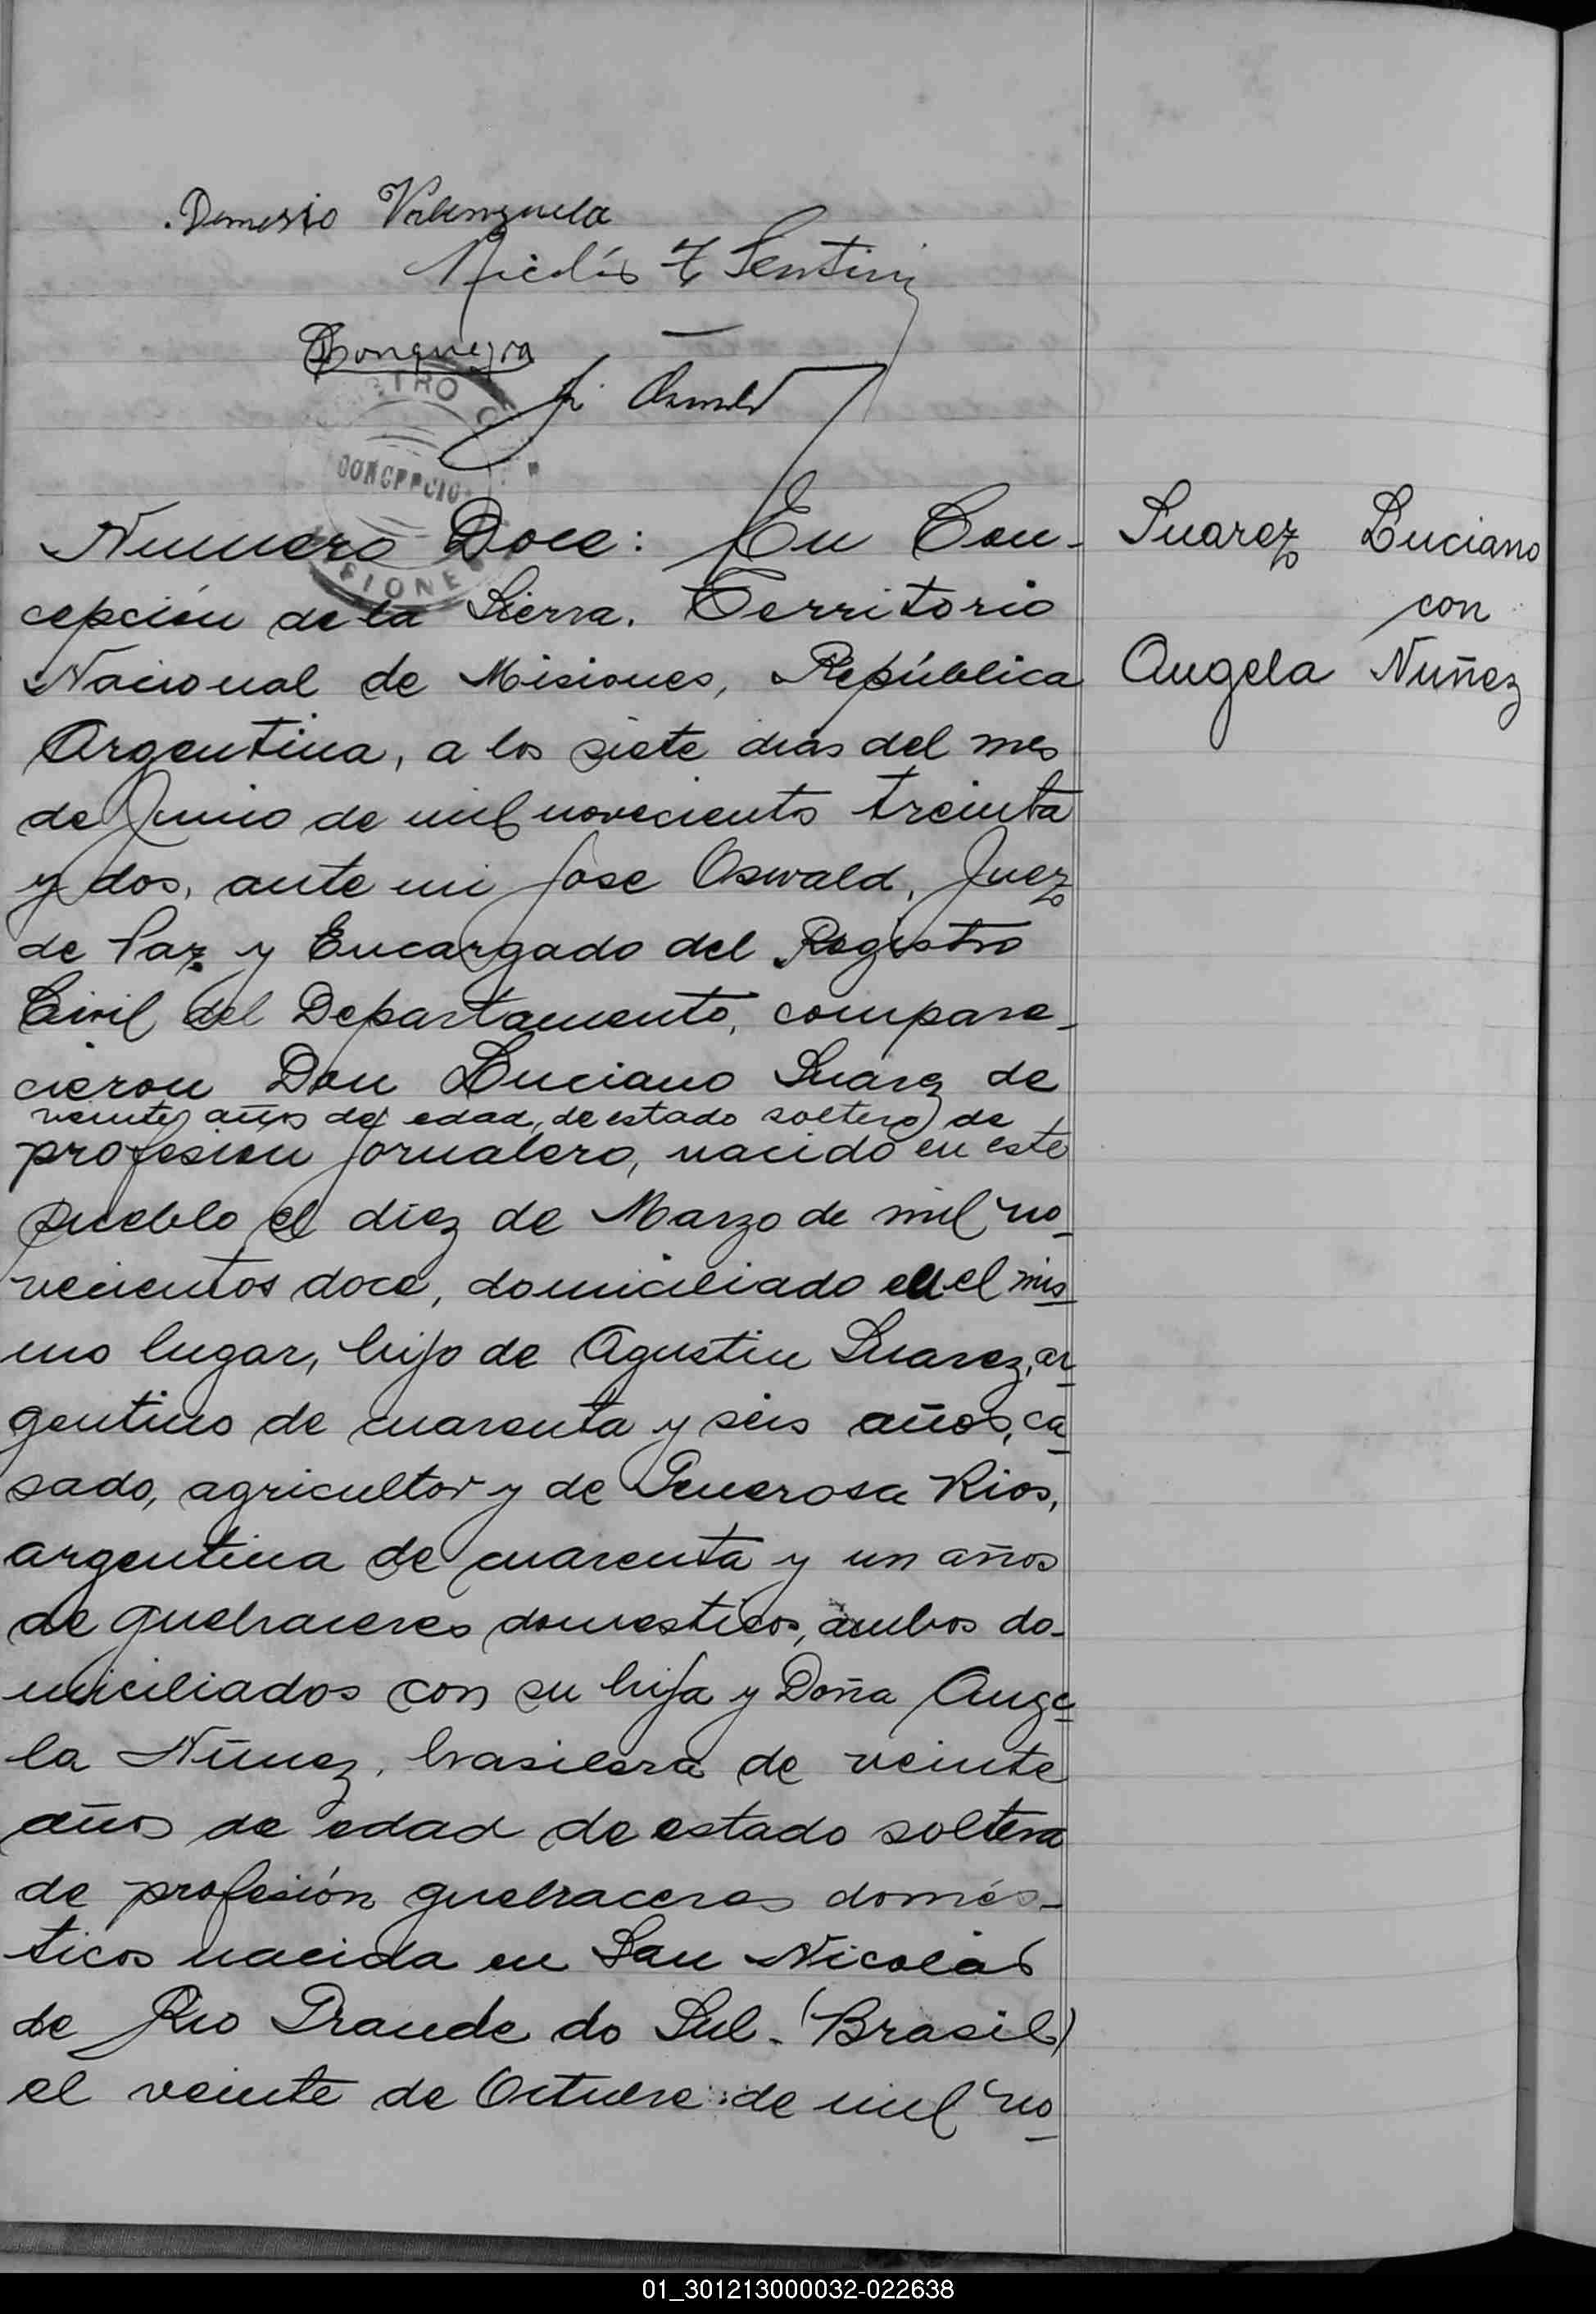 Demesio Valenzuela
Nicolás
J. Oswald
CONCEPCIO
Numero Doce: En Con-
cepción de la Sierra. Territorio
Nacional de Misiones, República
Argentina, a los siete dias del mes
de Junio de mil novecientos treinta
y dos, ante mi Jose Oswald, Juez
de Paz y Encargado del Registro
Civil del Departamento, compare-
cieron Don Luciano Suarez de
veinte años de edad, de estado soltero, de
profesion jornalero, nacido en este
pueblo el diez de Marzo de mil no-
vecientos doce, domiciliado en el mis-
mo lugar, hijo de Agustin Suarez, ar-
gentino de cuarenta y seis años, ca-
sado, agricultor y de Generosa Rios,
argentina de cuarenta y un años
de quehaceres domesticos, ambos do-
miciliados con su hija y Doña Ange-
la Nuñez, brasilera de veinte
años de edad de estado soltera
de profesión quehaceres domés-
ticos nacida en San Nicolás
de Rio Grande do Sul. (Brasil)
el veinte de Octubre de mil no-
Suarez Luciano
con
Angela Nuñez
01_301213000032-022638